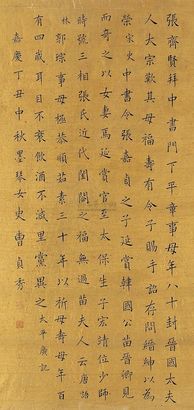 張齊賢拜中書門下平章事母八十封晉國太夫
人太宗歎其母福壽有令子賜手詔存問搢紳以為
榮宋史中書令張嘉貞之子延賞韓國公苗晉卿見
而奇之以女妻焉延賞官至太保生子宏靖位少師
時號三相張氏近代閨閫之福無過苗夫人云唐語
林郭琮事母極恭順茹素三十年以祈母壽母年百
有四歲耳目不衰飲酒不減里黨異之太平廣記
嘉慶丁丑中秋墨琴女史曹貞秀